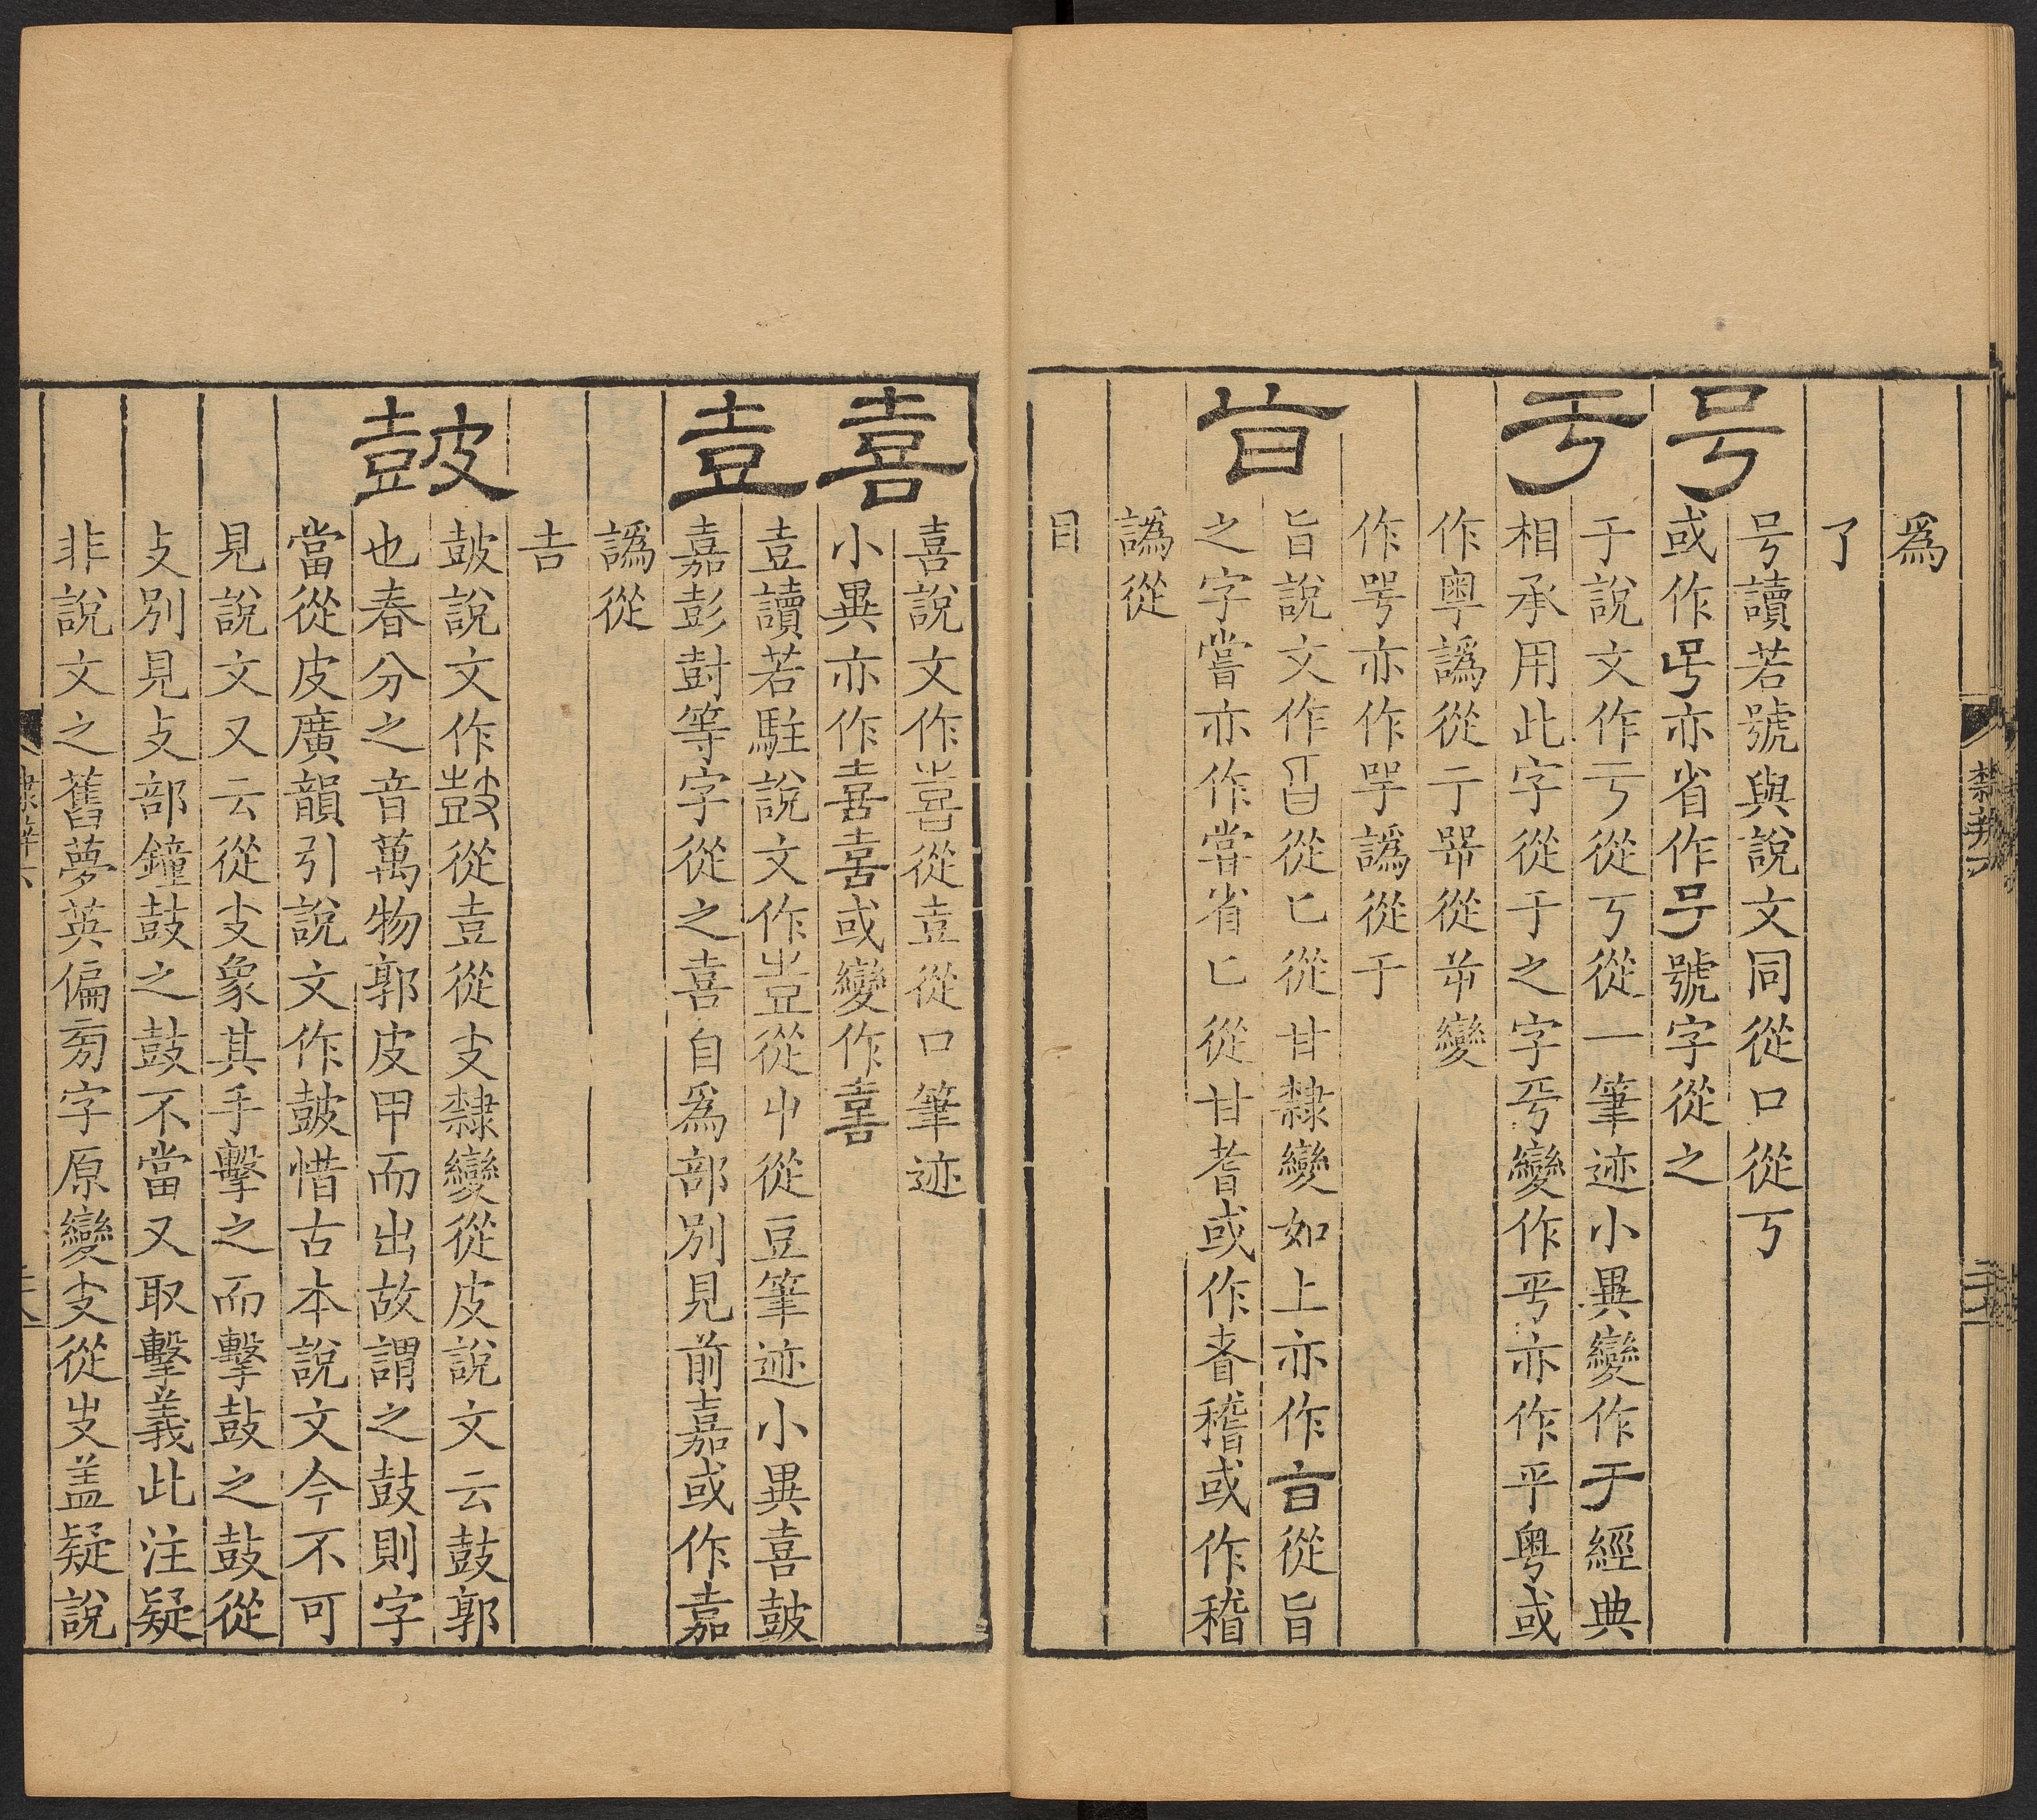 爲
了
号
号讀若號與說文同從口從丂
或作号亦省作号號字從之
亏
于說文作亏從丂從一筆迹小異變作于經典
相承用此字從于之字咢變作咢亦作平粤或
作粤譌從亍咢從屰變
作咢亦作咢譌從于
旨
旨說文作旨從匕從甘隸變如上亦作旨從旨
之字嘗亦作甞省匕從甘耆或作耆稽或作稽
譌從
目
喜
喜說文作喜從壴從口筆迹
小異亦作喜喜或變作喜
壴
壴讀若駐說文作壴從屮從豆筆迹小異喜鼓
嘉彭尌等字從之喜自爲部別見前嘉或作嘉
譌從
吉
皷
皷說文作鼓從壴從支隸變從皮說文云鼓郭
也春分之音萬物郭皮甲而出故謂之鼓則字
當從皮廣韻引說文作皷惜古本說文今不可
見說文又云從支象其手擊之而擊鼓之鼓從
攴別見攴部鐘鼓之鼓不當又取擊義此注疑
非說文之舊夢英偏旁字原變支從㞢盖疑說
隸辨六